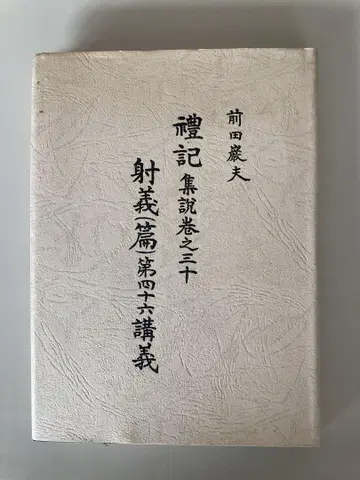 前田巌夫
禮記集説巻之三十
射義(篇)第四十六講義